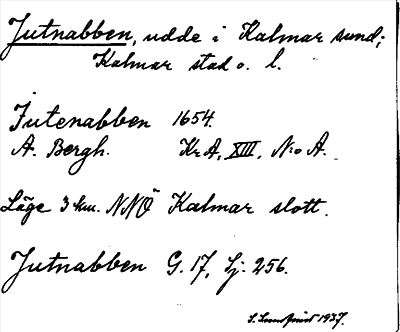 Jutnabben, udde i Kalmar sund;
Kalmar stad o. l.
Jutenabben 1654.
A. Bergh. Kr. A, XIII, N:o A.
Läge 3 km. NNÖ Kalmar slott.
Jutnabben G. 17, Lj. 256.
S. Lundqvist 1937.